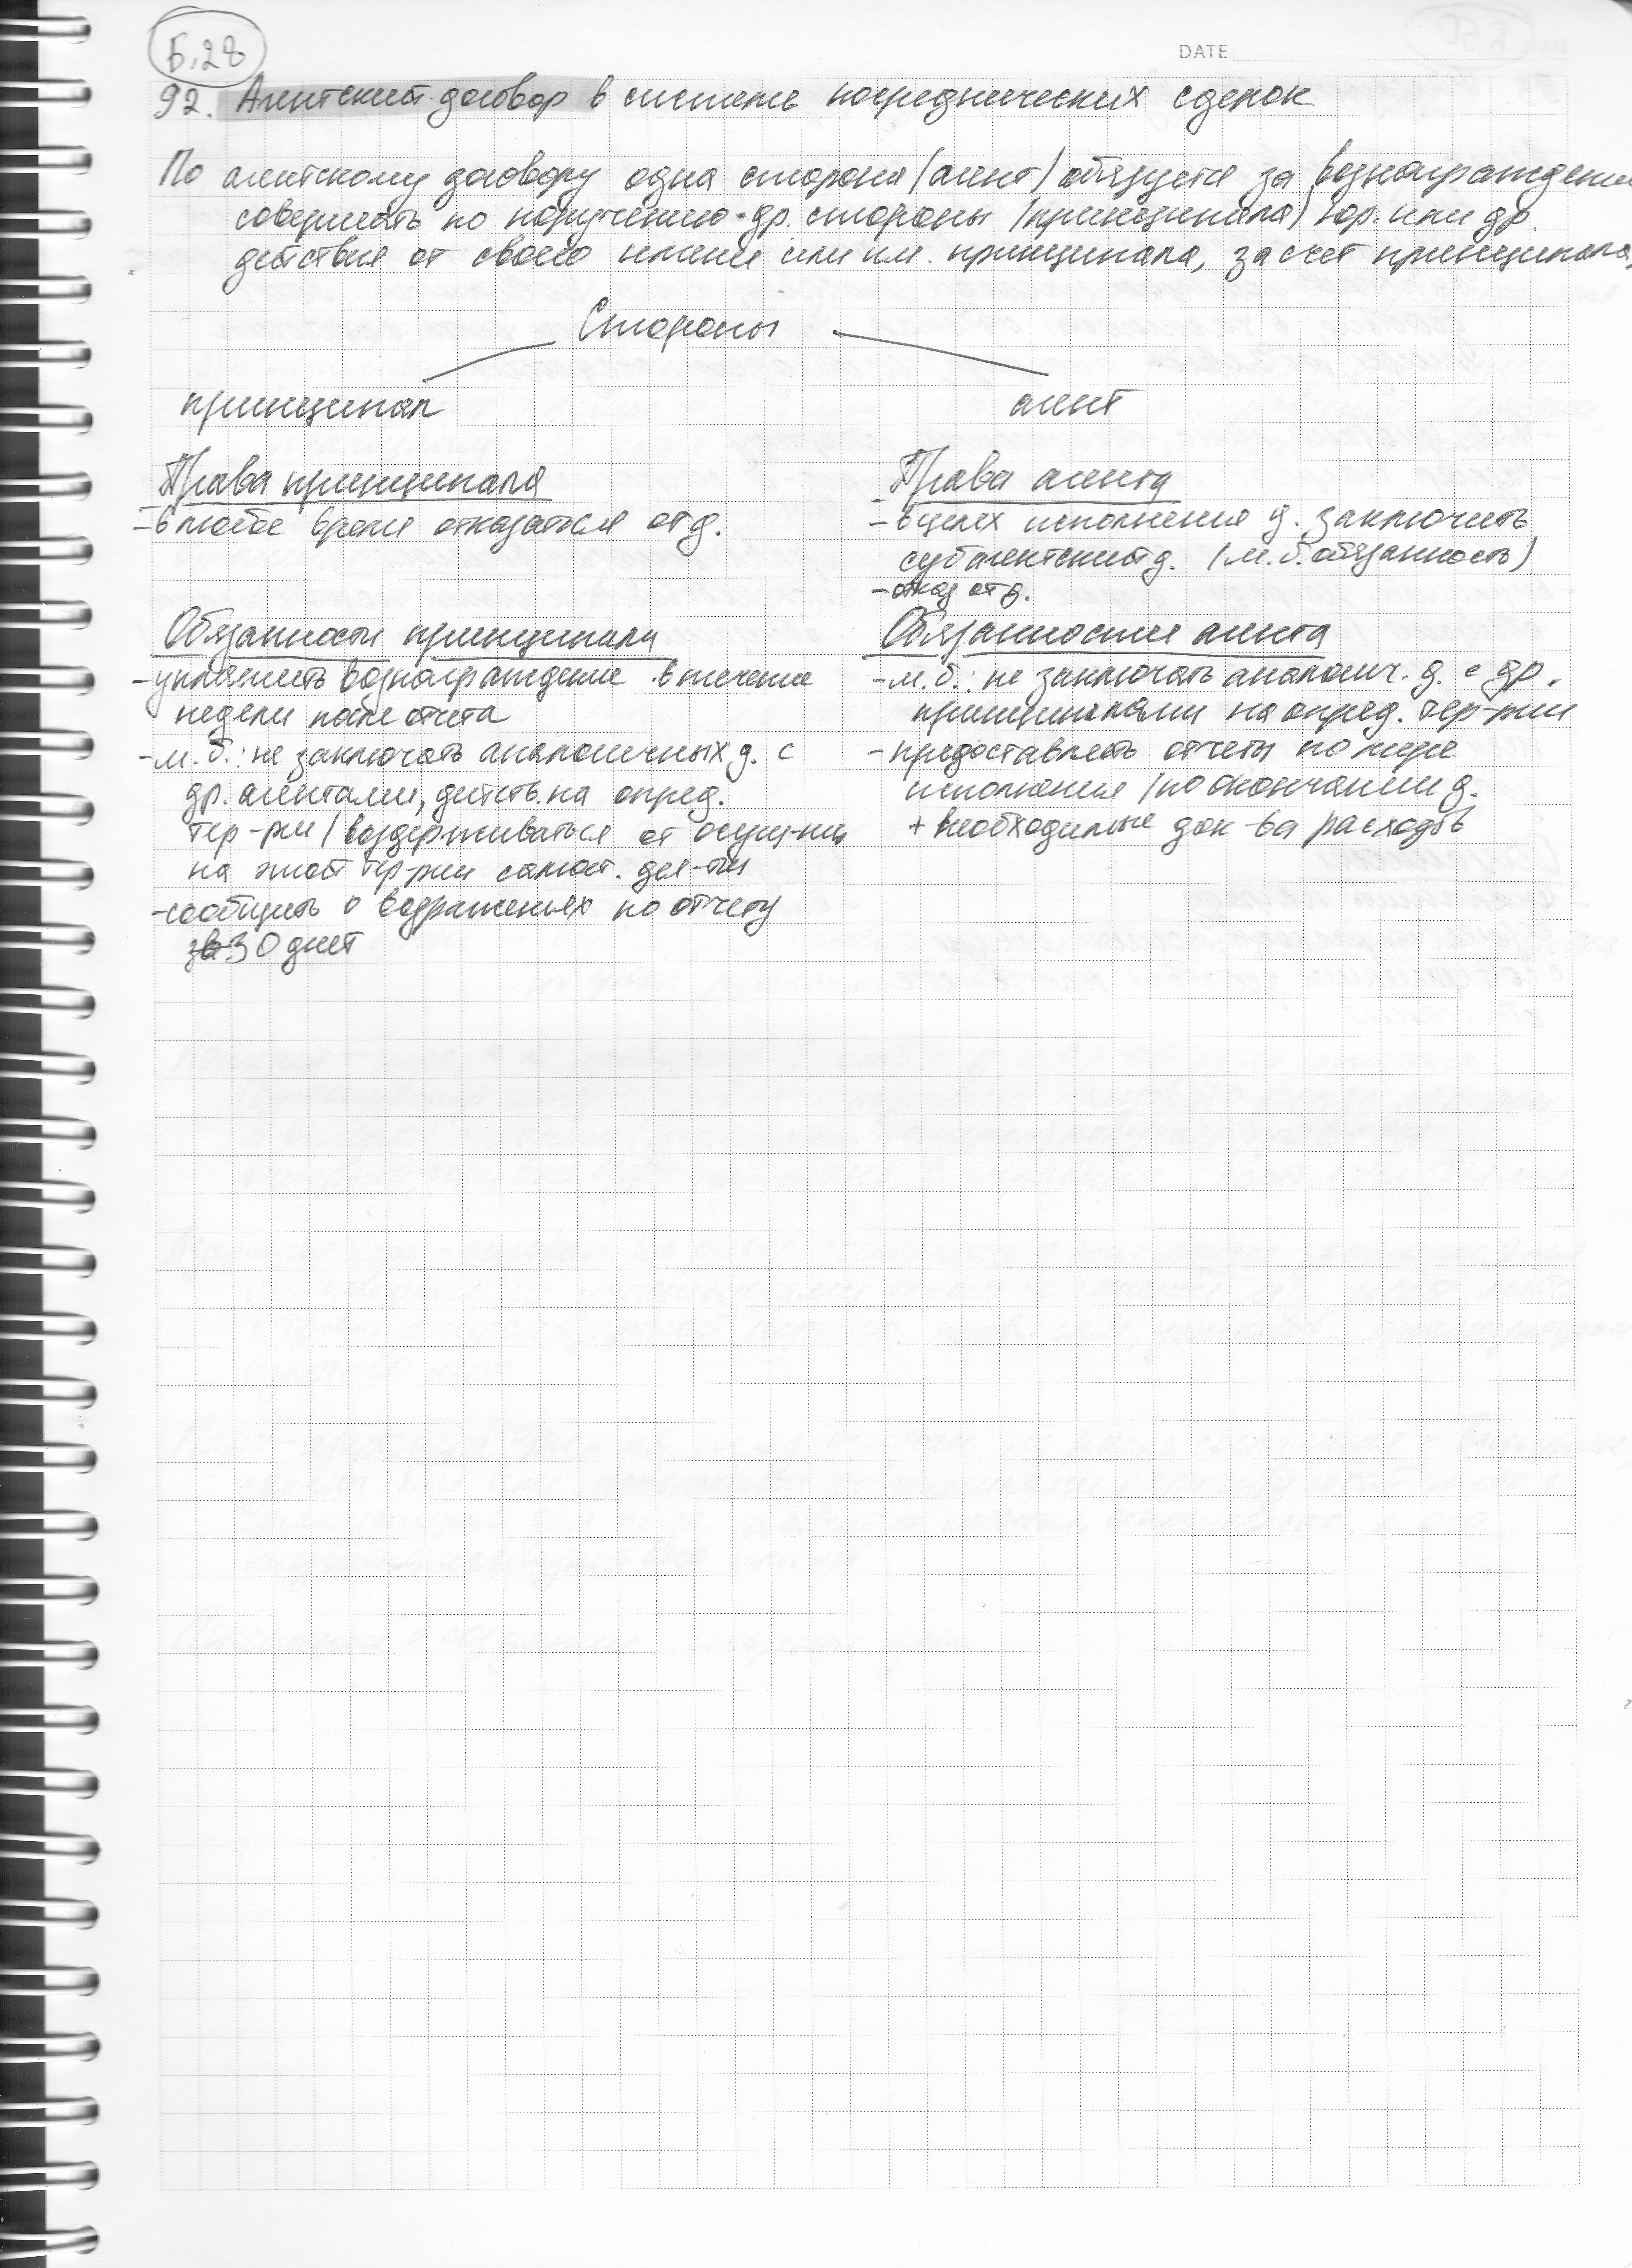 Б.28
DATE
92. Агентский договор в системе посреднических сделок
По агентскому договору одна сторона (агент) обязуется за вознаграждение
совершать по поручению др. стороны (принципала) юр. или др.
действия от своего имени или им. принципала, за счет принципала.
Стороны
принципал
агент
Права принципала
- в любое время отказаться от д.
Обязанности принципала
- уплатить вознаграждение в течение
недели после отчета
- м.б.: не заключать аналогичных д. с
др. агентами, действ. на опред.
тер-рии / воздерживаться от осущ-ния
на этой тер-рии самост. дея-ти
- сообщить о возражениях по отчету
30 дней
Права агента
- в целях исполнения д. заключить
субагентский д. (м.б. обязанность)
- отказ от д.
Обязанности агента
- м.б.: не заключать аналогич. д. с др.
принципалами на опред. тер-рии
- предоставлять отчеты по мере
исполнения / по окончании д.
+ необходимые док-ва расходов